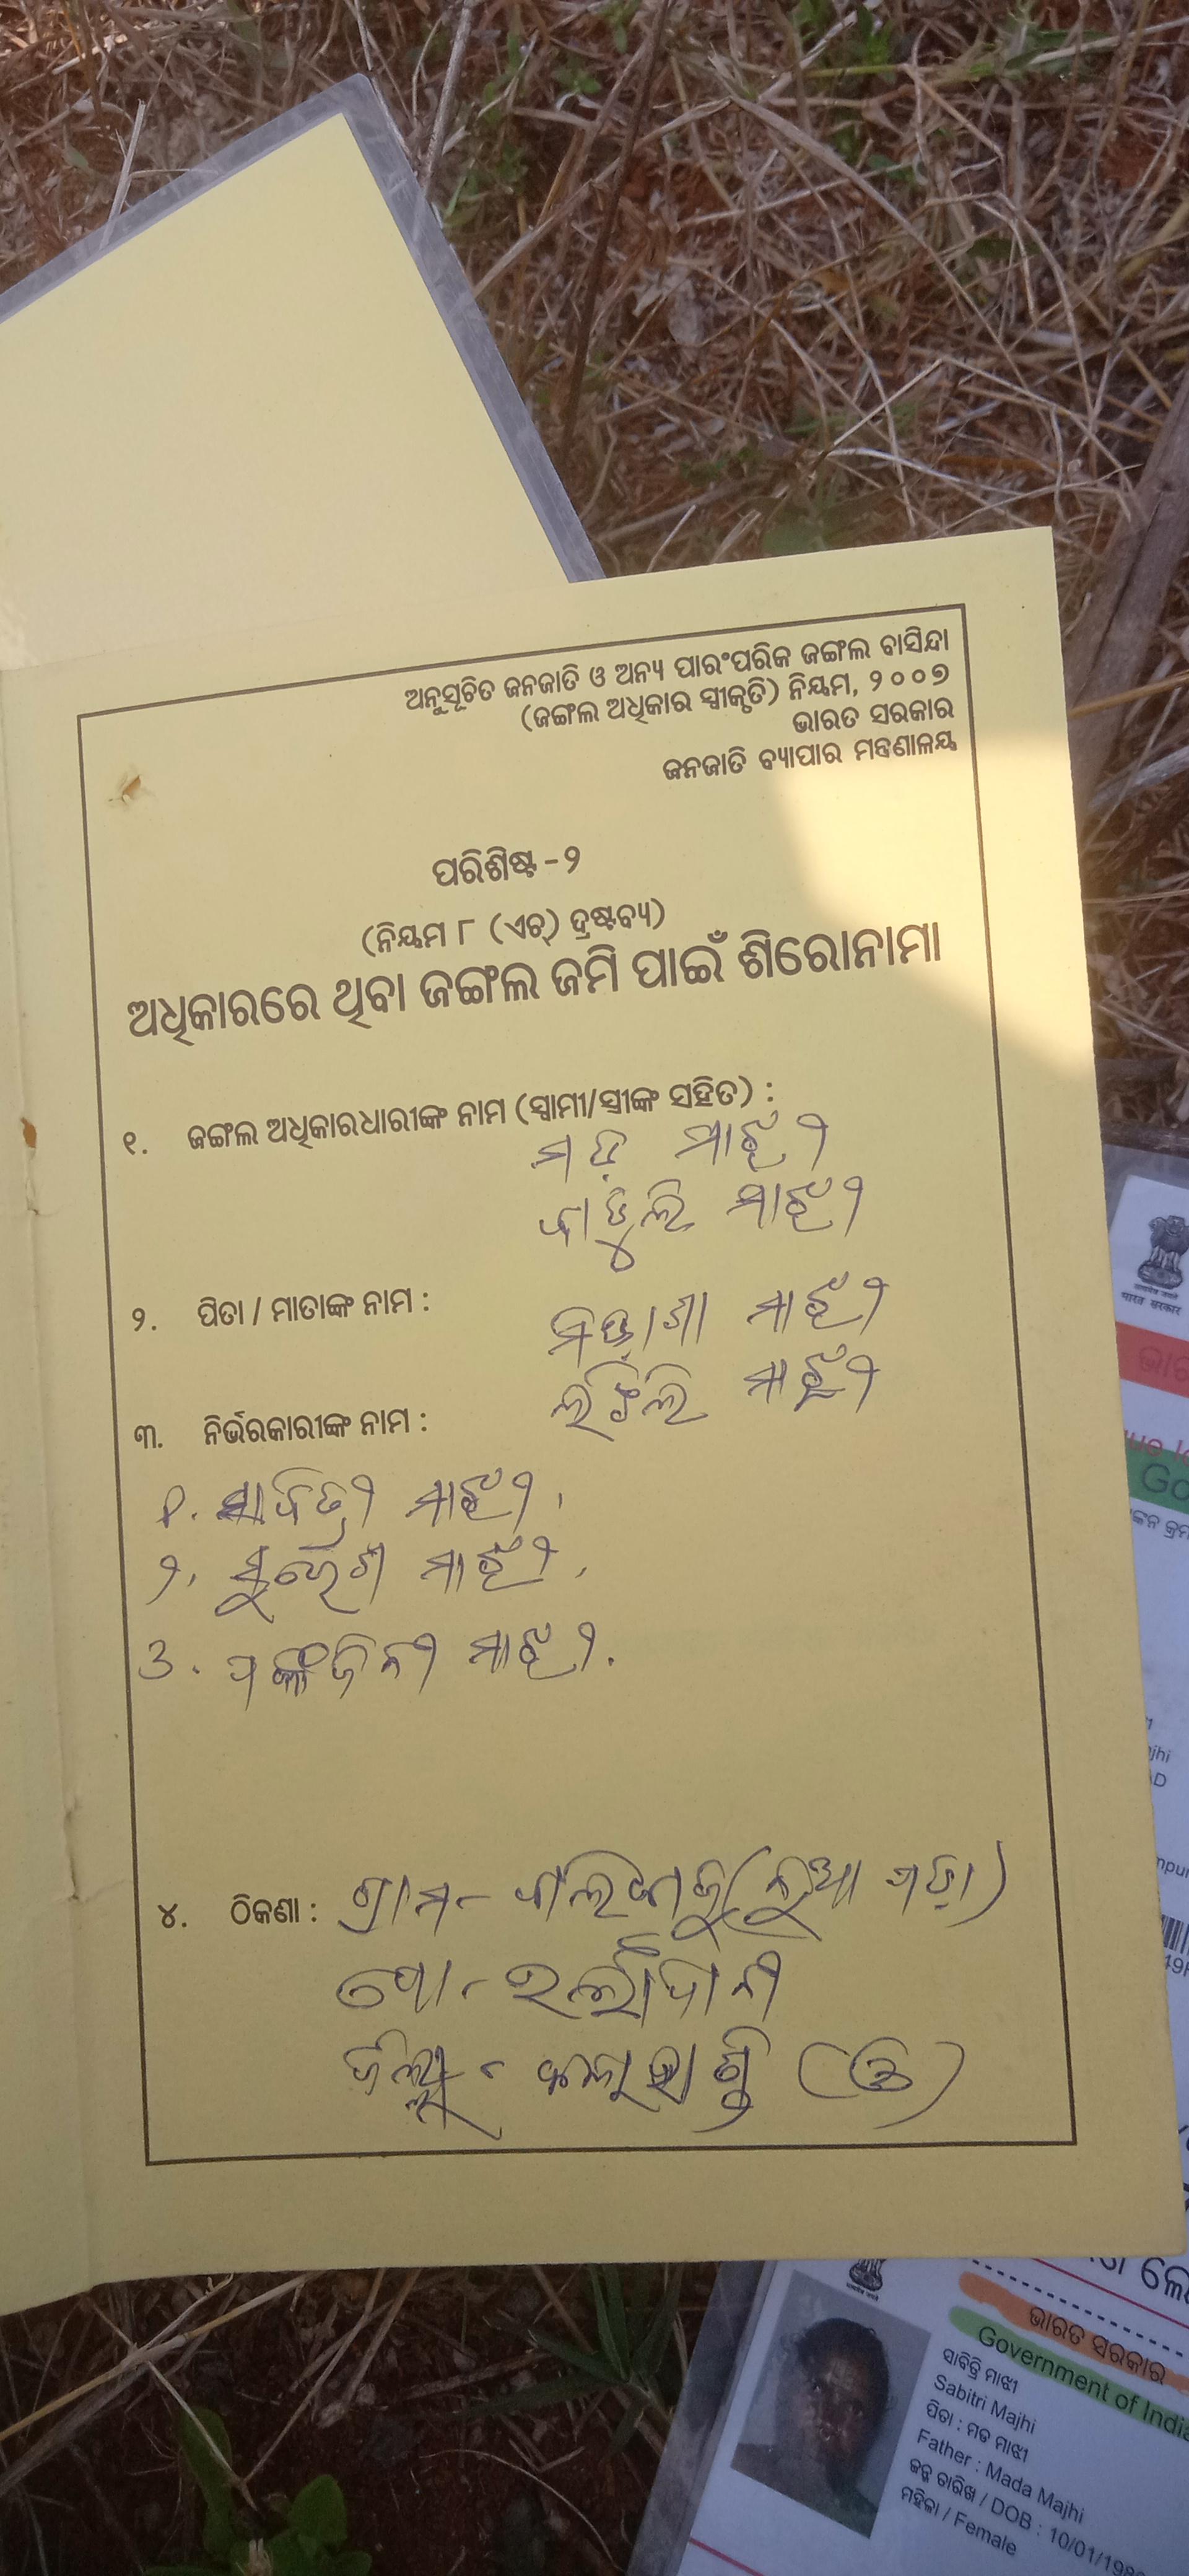 ଅନୁସୂଚିତ ଜନଜାତି ଓ ଅନ୍ୟ ପାରଂପରିକ ଜଙ୍ଗଲ ବାସିନ୍ଦା
(ଜଙ୍ଗଲ ଅଧିକାର ସ୍ୱୀକୃତି) ନିୟମ, ୨୦୦୭
ଭାରତ ସରକାର
ଜନଜାତି ବ୍ୟାପାର ମନ୍ତ୍ରଣାଳୟ
ପରିଶିଷ୍ଟ - ୨
(ନିୟମ ୮ (ଏଚ୍) ଦ୍ରଷ୍ଟବ୍ୟ)
ଅଧିକାରରେ ଥିବା ଜଙ୍ଗଲ ଜମି ପାଇଁ ଶିରୋନାମା
୧. ଜଙ୍ଗଲ ଅଧିକାରଧାରୀଙ୍କ ନାମ (ସ୍ୱାମୀ/ସ୍ତ୍ରୀଙ୍କ ସହିତ) :
ମଡ଼ ମାଝୀ
ମାଝୀ
୨. ପିତା / ମାତାଙ୍କ ନାମ :
ମାଝୀ
ମାଝୀ
୩. ନିର୍ଭରକାରୀଙ୍କ ନାମ :
୧. ସାବିତ୍ରୀ ମାଝୀ,
୨, ମାଝୀ,
୩. ପଙ୍କଜିନୀ ମାଝୀ.
୪. ଠିକଣା : ଗ୍ରାମ- (ନୁଆ ପଡ଼ା)
ପୋ-
ଜିଲ୍ଲା - କଳାହାଣ୍ଡି (ଓ)
भारत सरकार
ଭାରତ ସରକାର
Government of India
ସାବିତ୍ରି ମାଝୀ
Sabitri Majhi
ପିତା : ମଡ ମାଝୀ
Father : Mada Majhi
ଜନ୍ମ ତାରିଖ / DOB : 10/01/198
ମହିଳା / Female